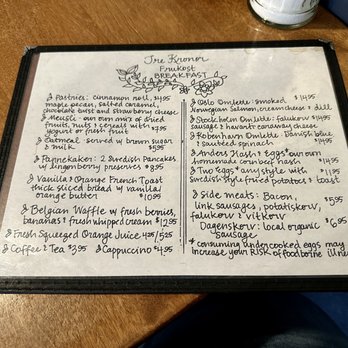 Tre Kronor
Frukost
BREAKFAST
Pastries: cinnamon roll, $4.95
maple pecan, salted caramel,
chocolate twist and strawberry cheese
Meusli - our own mix of dried
fruits, nuts & cereals with $7.95
yogurt or fresh fruit
Oatmeal served w/ brown sugar
& milk
Pannekaken: 2 Swedish Pancakes
w/ lingonberry preserves $8.95
Vanilla & Orange French Toast
thick sliced bread w/ vanilla/
orange butter $10.95
Belgian Waffle w/ fresh berries,
bananas & fresh whipped cream $12.95
Fresh Squeezed Orange Juice 4.25/5.25
Coffee & Tea $3.95 Cappuccino $4.95
Oslo Omelette: smoked $14.95
Norwegian Salmon, cream cheese & dill
Stockholm Omelette: falukorv $14.95
sausage & havarti caraway cheese
København Omelette Danish blue
& sauteed spinach $14.95
Anders Hash & Eggs our own
homemade corn beef hash $14.95
Two Eggs any style with $11.95
Swedish style fried potatoes & toast
Side meats: Bacon,
link sausages, potatiskorv, $5.95
falukorv & vitkorv
Dagenskorv: local organic
sausage $6.95
* consuming undercooked eggs may
increase your RISK of foodborne illness